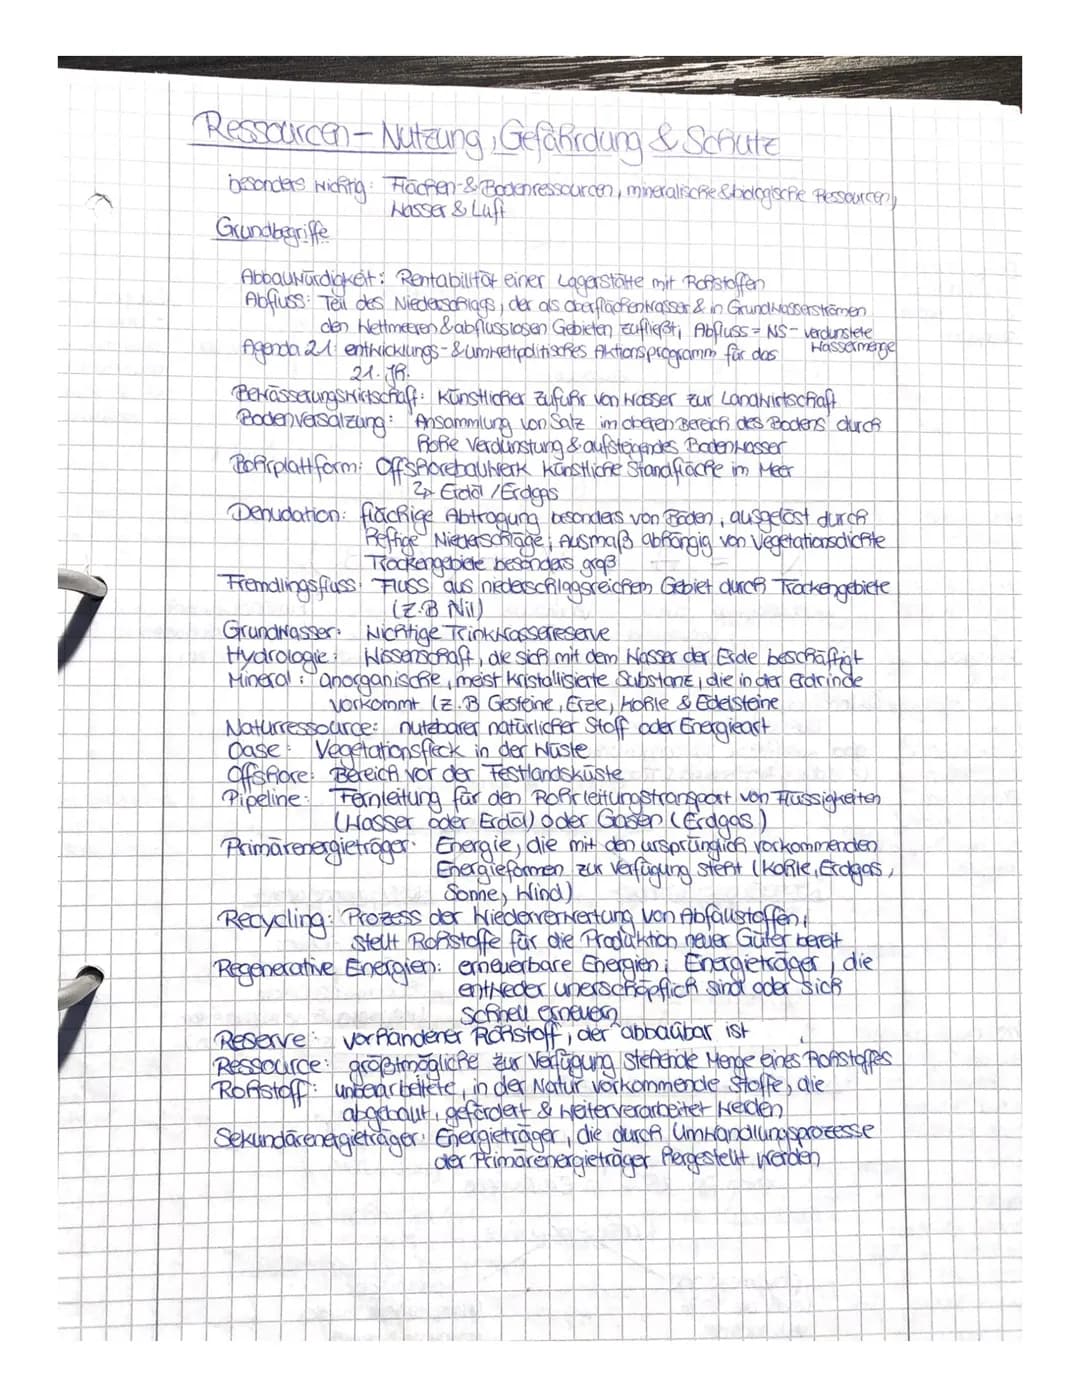 Ressourcen - Nutzung, Gefährdung & Schutz
besonders wichtig: Flächen- & Bodenressourcen, mineralische & biologische Ressourcen,
Wasser & Luft
Grundbegriffe
Abbauwürdigkeit: Rentabilität einer Lagerstätte mit Rohstoffen
Abfluss: Teil des Niederschlags, der als Oberflächenwasser & in Grundwasserströmen
den Weltmeeren & abflusslosen Gebieten zufließt; Abfluss = NS - verdunstete
Wassermenge
Agenda 21: entwicklungs- & umweltpolitisches Aktionsprogramm für das
21. Jh.
Bewässerungswirtschaft: Künstlicher Zufuhr von Wasser zur Landwirtschaft
Bodenversalzung: Ansammlung von Salz im oberen Bereich des Bodens durch
hohe Verdunstung & aufsteigendes Bodenwasser
Bohrplattform: Offshorebauwerk künstliche Standfläche im Meer
↳ Erdöl / Erdgas
Denudation: flächige Abtragung besonders von Böden, ausgelöst durch
heftige Niederschläge; Ausmaß abhängig von Vegetationsdichte
Trockengebiete besonders groß
Fremdlingsfluss: Fluss aus niederschlagsreichem Gebiet durch Trockengebiete
(z.B Nil)
Grundwasser: Wichtige Trinkwasserreserve
Hydrologie: Wissenschaft, die sich mit dem Wasser der Erde beschäftigt
Mineral: anorganische, meist kristallisierte Substanz, die in der Erdrinde
vorkommt (z.B Gesteine, Erze, Kohle & Edelsteine
Naturressource: nutzbarer natürlicher Stoff oder Energieart
Oase: Vegetationsfleck in der Wüste
Offshore: Bereich vor der Festlandsküste
Pipeline: Fernleitung für den Rohrleitungstransport von Flüssigkeiten
(Wasser oder Erdöl) oder Gasen (Erdgas)
Primärenergieträger: Energie, die mit den ursprünglich vorkommenden
Energieformen zur Verfügung steht (Kohle, Erdgas,
Sonne, Wind)
Recycling: Prozess der Wiederverwertung von Abfallstoffen;
stellt Rohstoffe für die Produktion neuer Güter bereit
Regenerative Energien: erneuerbare Energien; Energieträger, die
entweder unerschöpflich sind oder sich
schnell erneuern
Reserve: vorhandener Rohstoff, der abbaubar ist
Ressource: größtmögliche zur Verfügung stehende Menge eines Rohstoffes
Rohstoff: unbearbeitete, in der Natur vorkommende Stoffe, die
abgebaut, gefördert & weiterverarbeitet werden
Sekundärenergieträger: Energieträger, die durch Umwandlungsprozesse
der Primärenergieträger hergestellt werden